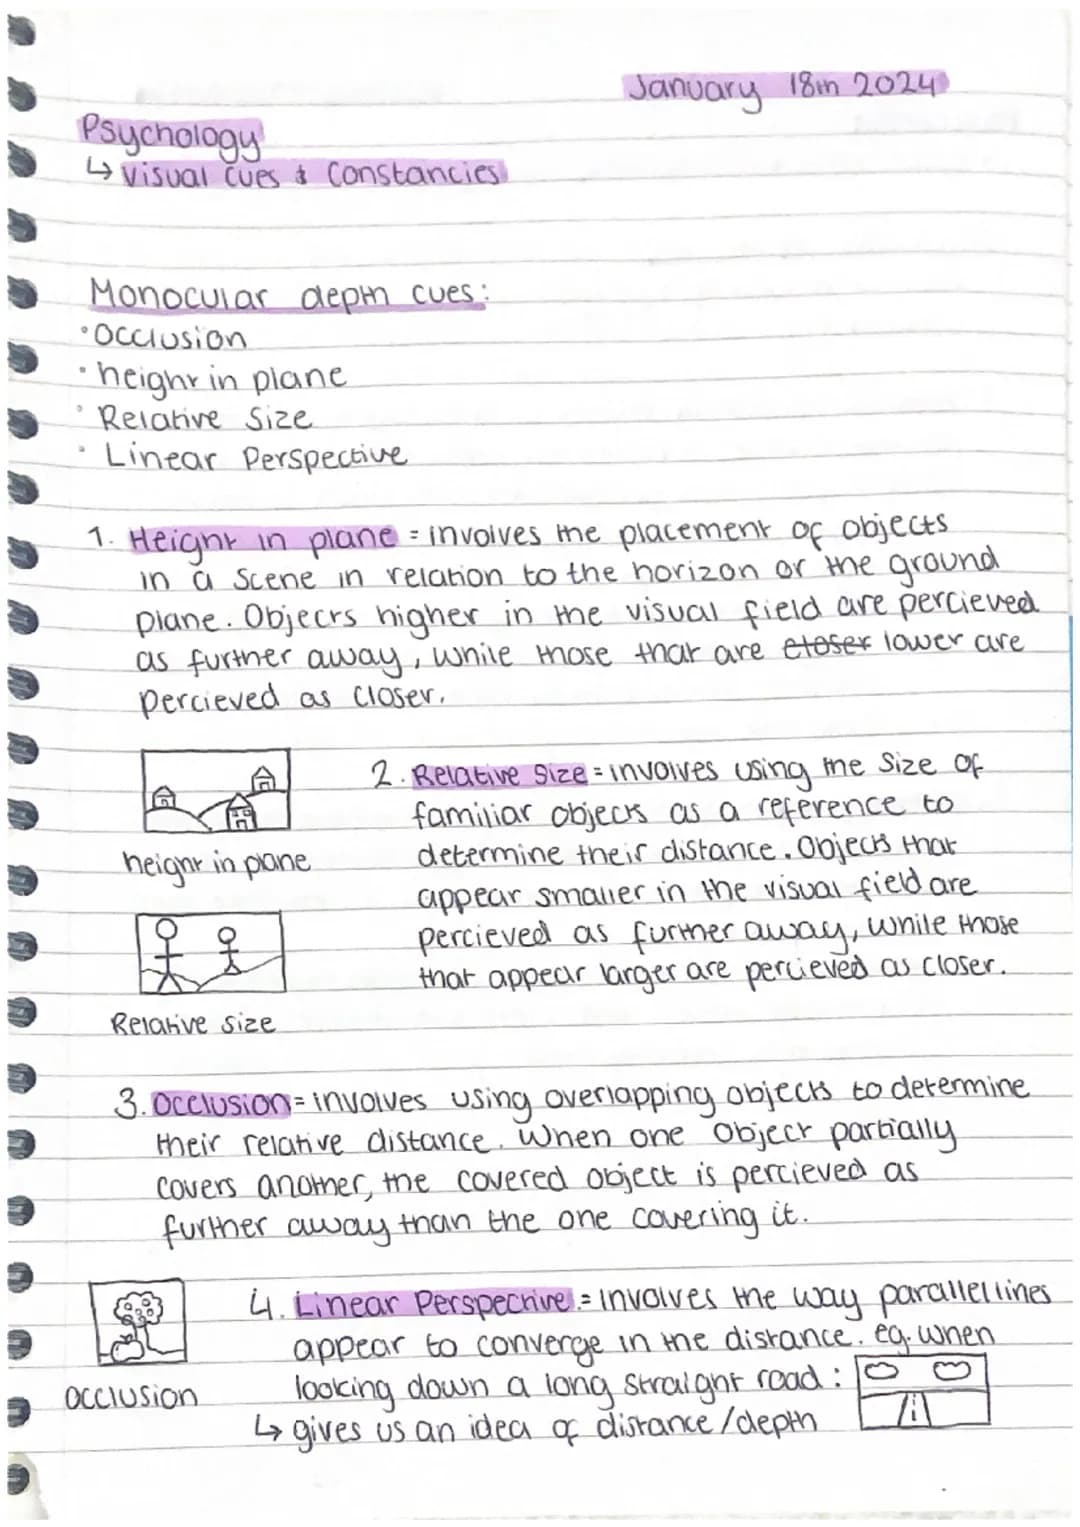 January 18th 2024
Psychology
↳ Visual Cues & Constancies
Monocular depth cues:
• Occlusion
• height in plane
• Relative Size
• Linear Perspective
1. Height in plane = involves the placement of objects
in a scene in relation to the horizon or the ground
plane. Objects higher in the visual field are percieved
as further away, while those that are closer lower are
percieved as closer.
height in plane
Relative size
2. Relative Size = involves using the size of
familiar objects as a reference to
determine their distance. Objects that
appear smaller in the visual field are
percieved as further away, while those
that appear larger are percieved as closer.
3. Occlusion = involves using overlapping objects to determine
their relative distance. When one object partially
covers another, the covered object is percieved as
further away than the one covering it.
occlusion
4. Linear Perspective = involves the way parallel lines
appear to converge in the distance. eg. when
looking down a long straight road:
↳ gives us an idea of distance/depth